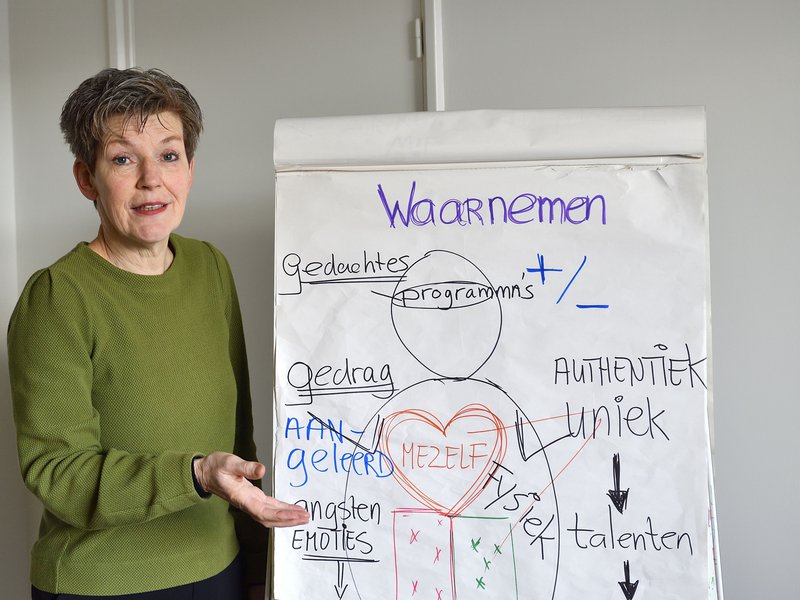 Waarnemen
Gedachtes
programmn's
+/_
gedrag
AUTHENTIEK
uniek
AAN-
geleerd
MEZELF
Fysiek
angsten
EMOTIES
talenten